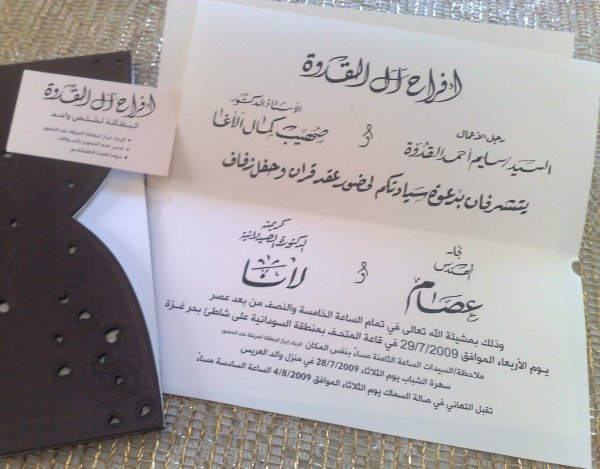 أفراح آل القدوة
البطاقة لشخص واحد
الرجاء إبراز البطاقة المرفقة عند الحضور
يرجى عدم التصوير بالجوالات
نوماً هنيئاً لأطفالكم
أفراح آل القدوة
رجل الأعمال
السيد/سليم أحمد القدوة
و
الأستاذ الدكتور
صهيب كمال الأغا
يتشرفان بدعوة سيادتكم لحضور عقد قران وحفل زفاف
نجله
المهندس
عصام
و
كريمته
الدكتورة الصيدلانية
لانا
وذلك بمشيئة الله تعالى في تمام الساعة الخامسة والنصف من بعد عصر
يـوم الأربعاء الموافق 29/7/2009 في قاعة المتحف بمنطقة السودانية على شاطئ بحر غـزة
ملاحظة/السيدات الساعة الثامنة مساءً بنفس المكان الرجاء إبراز البطاقة المرفقة عند الحضور
سهرة الشباب يوم الثلاثاء 28/7/2009 في منزل والد العريس
تقبل التهاني في صالة السماك يوم الثلاثاء الموافق 4/8/2009 الساعة السادسة مساءً